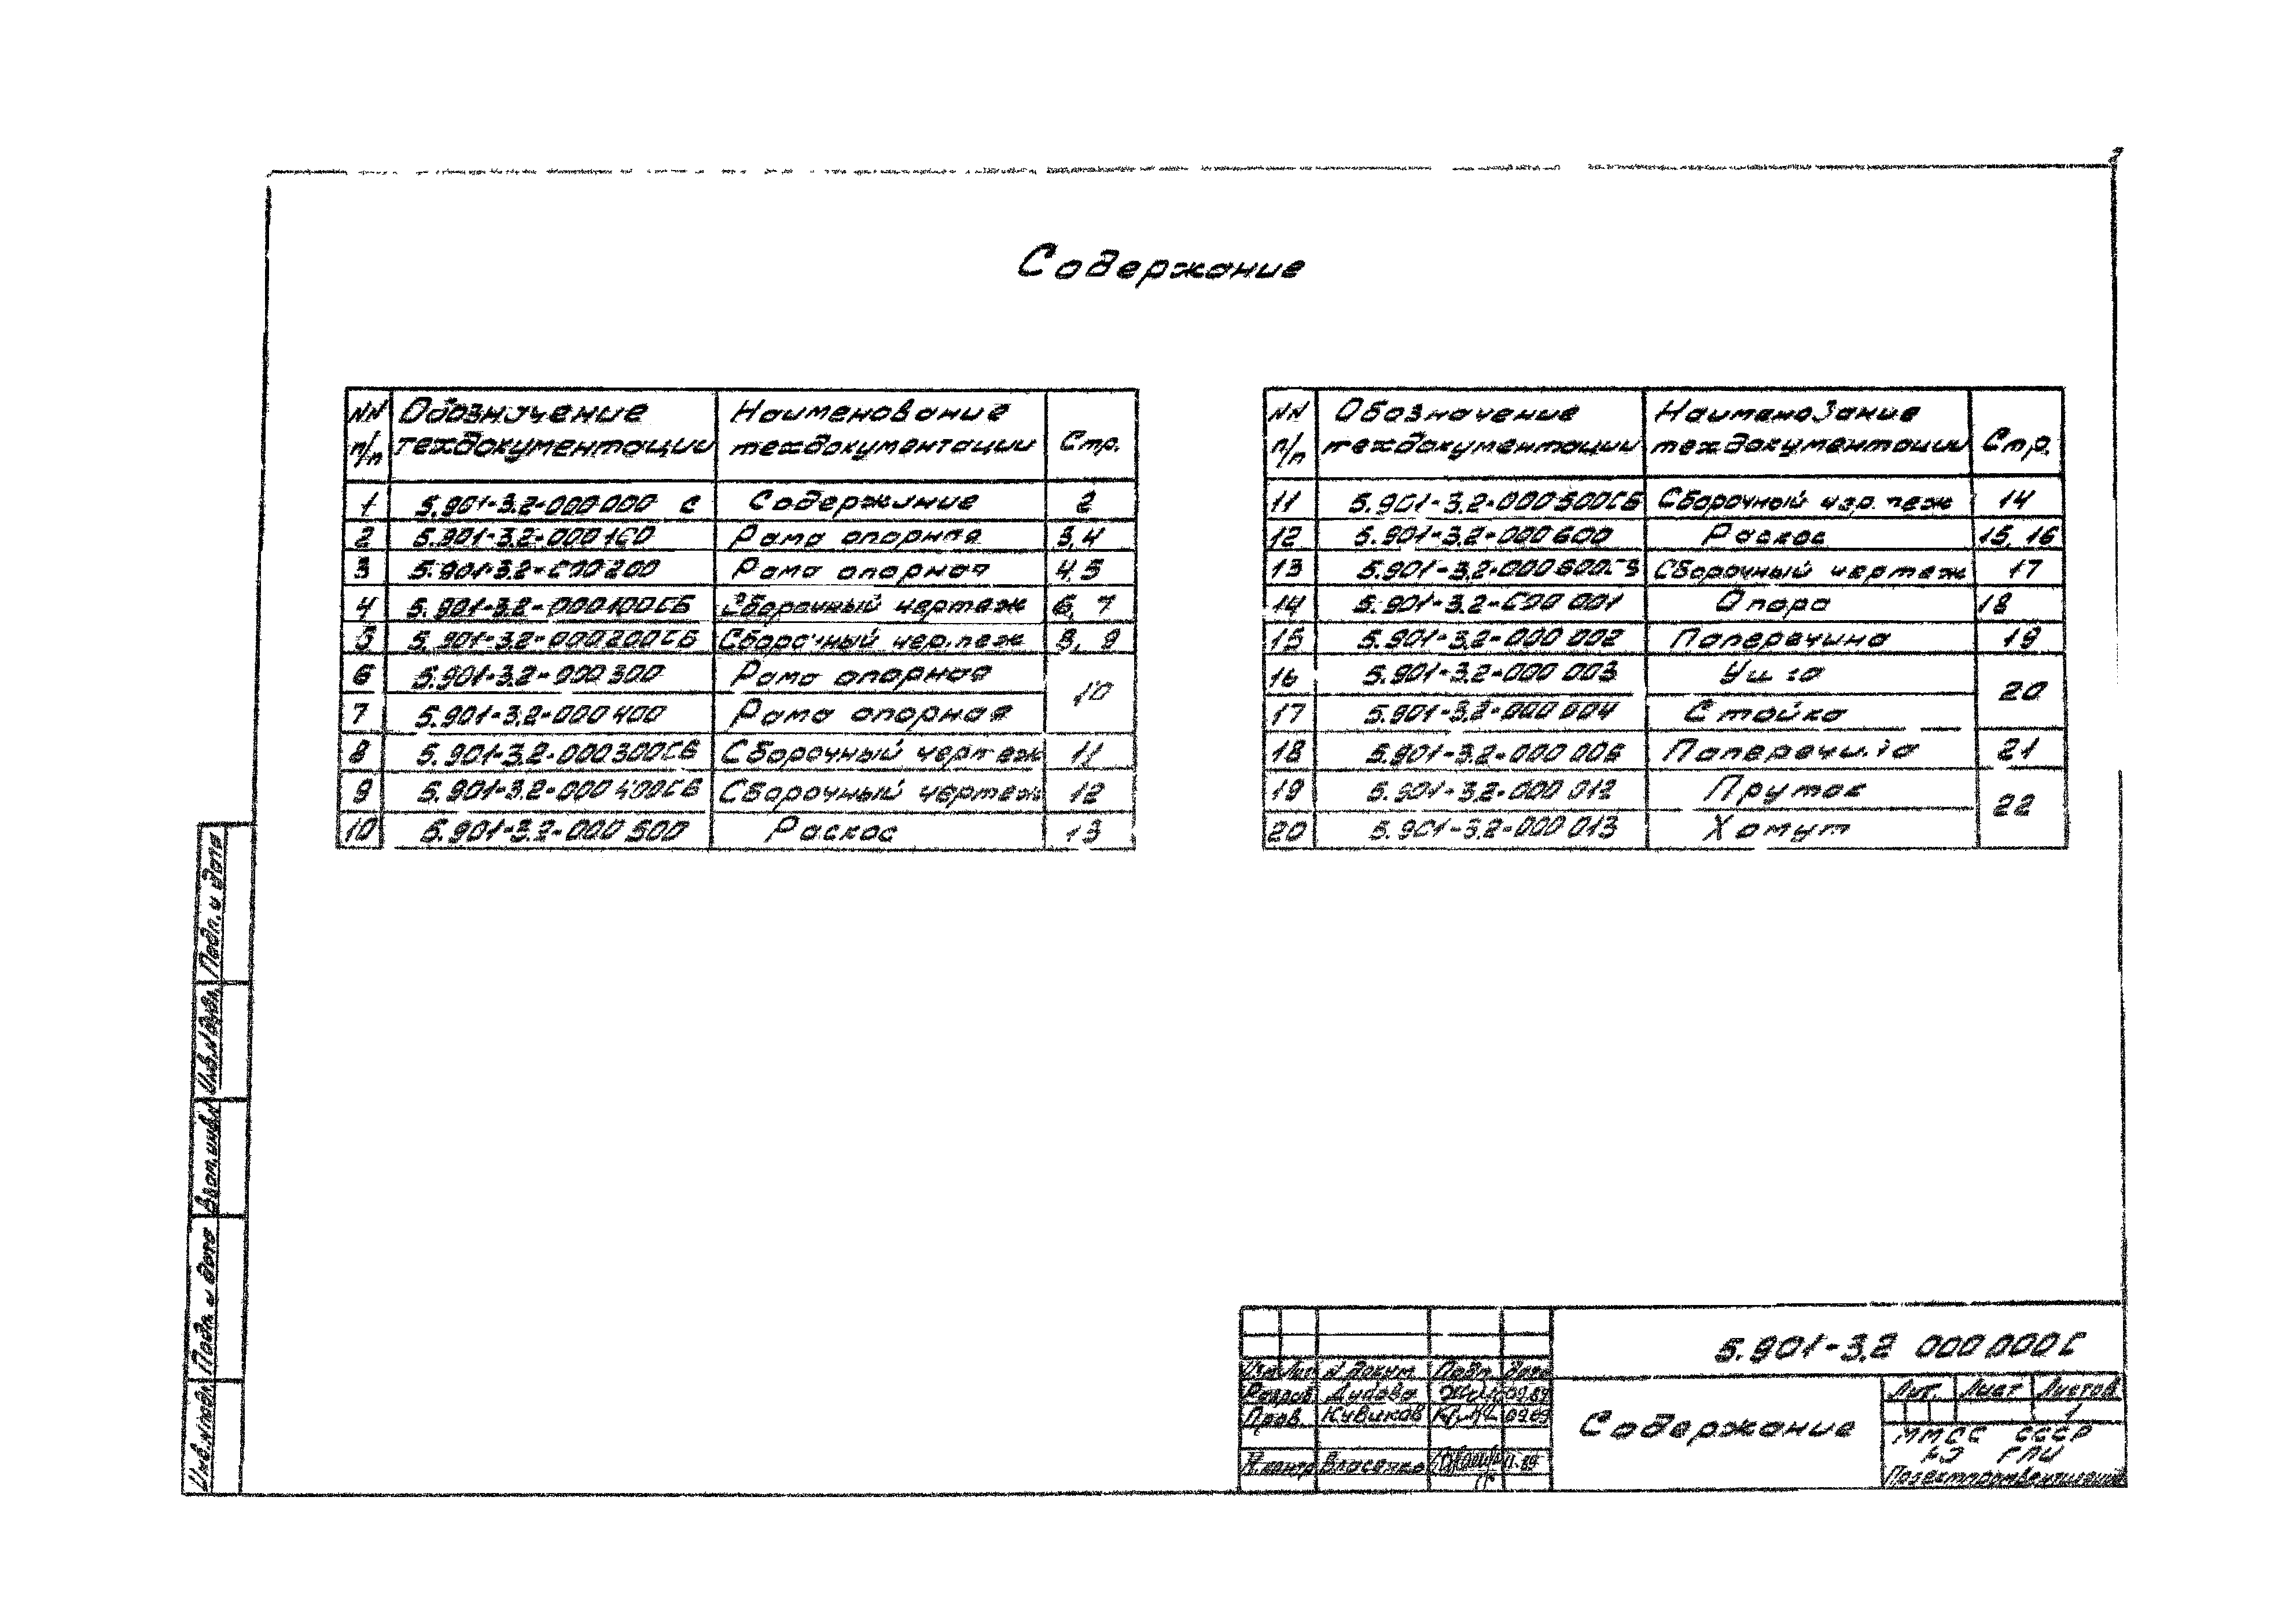 2
Содержание
NN п/п Обозначение техдокументации Наименование техдокументации Стр.
1 5.901-3.2-000000 С Содержание 2
2 5.901-3.2-000100 Рама опорная 3,4
3 5.901-3.2-000200 Рама опорная 4,5
4 5.901-3.2-000100СБ Сборочный чертеж 6, 7
5 5.901-3.2-000200СБ Сборочный чертеж 8, 9
6 5.901-3.2-000300 Рама опорная 10
7 5.901-3.2-000400 Рама опорная
8 5.901-3.2-000300СБ Сборочный чертеж 11
9 5.901-3.2-000400СБ Сборочный чертеж 12
10 5.901-3.2-000500 Раскос 13
NN п/п Обозначение техдокументации Наименование техдокументации Стр.
11 5.901-3.2-000500СБ Сборочный чертеж 14
12 5.901-3.2-000600 Раскос 15, 16
13 5.901-3.2-000600СБ Сборочный чертеж 17
14 5.901-3.2-000 001 Опора 18
15 5.901-3.2-000 002 Поперечина 19
16 5.901-3.2-000 003 20
17 5.901-3.2-000 004 Стойка
18 5.901-3.2-000 006 Поперечина 21
19 5.901-3.2-000 012 Пруток 22
20 5.901-3.2-000 013 Хомут
Подп. и дата
Инв.N дубл.
Взам.инв.N
Подп. и дата
Инв.N подл.
5.901-3.2 000000С
Изм Лист N докум. Подп. Дата
Разраб. Дубова 09.89
Пров. Кувиков 09.89
Н.контр Власенко 11.89
Содержание
Лит. Лист Листов
1
ММСС СССР
ГПИ
Проектпромвентиляция